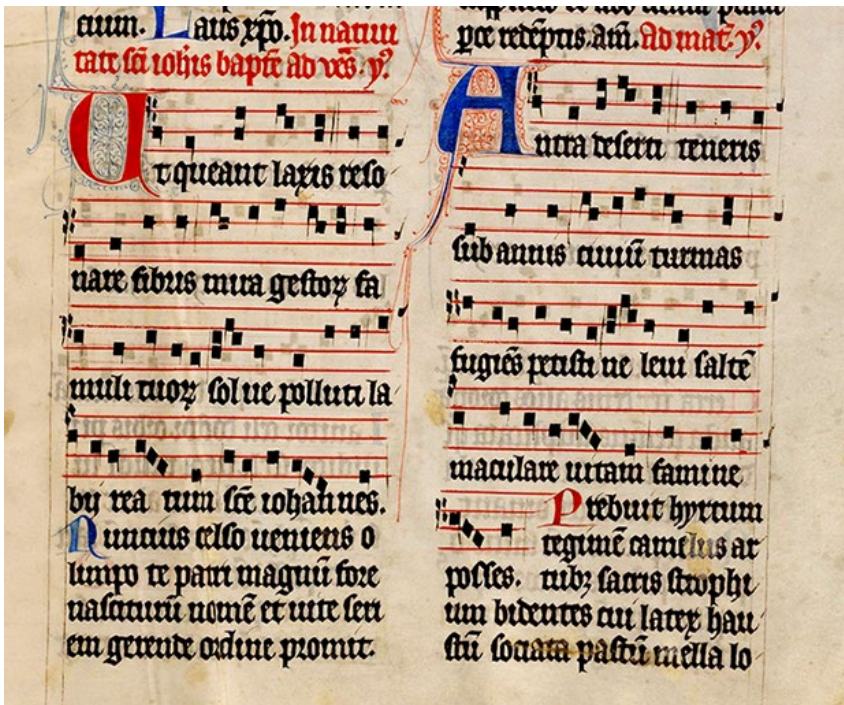 Laus xp̄o. In natiui
tate sc̄i ioh̄is bapt̄e ad vēs. yꝰ.
Ut queant laxis reso
nare fibris mira gestoꝝ fa
muli tuoꝝ solue polluti la
bij rea tum sc̄e iohannes.
Nuncius celso ueniens o
limpo te patri magnū fore
nasciturū nomē et uite seri
em gerende ordine promit.
redēptis. am̄. ad mat̄. yꝰ.
Antra deserti teneris
sub annis ciuiū turmas
fugiēs petisti ne leui saltē
maculare uitam famine
posses. Prebuit hyrtum
tegimē camelus ar
tubꝫ sacris strophi
um bidentes cui latex hau
stū sociata pastū mella lo